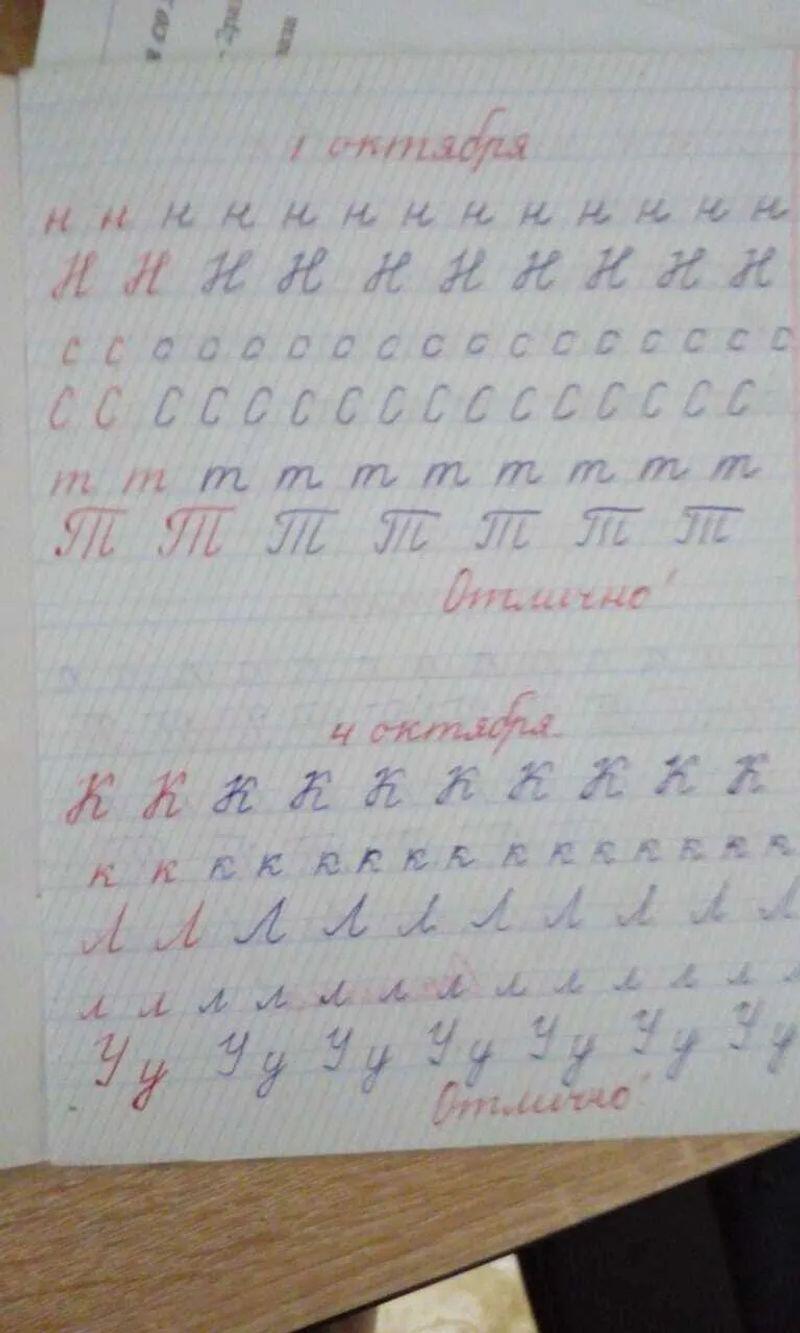 1 октября
н н н н н н н н н н н н н
Н Н Н Н Н Н Н Н Н Н
с с с с с с с с с с с с с с с с с
С С С С С С С С С С С С С С С С
т т т т т т т т т т
Т Т Т Т Т Т Т
Отлично!
4 октября
К К К К К К К К К К
к к к к к к к к к к к к к к к
Л Л Л Л Л Л Л Л Л Л
л л л л л л л л л л л л л
У у У у У у У у У у У у У у
Отлично!